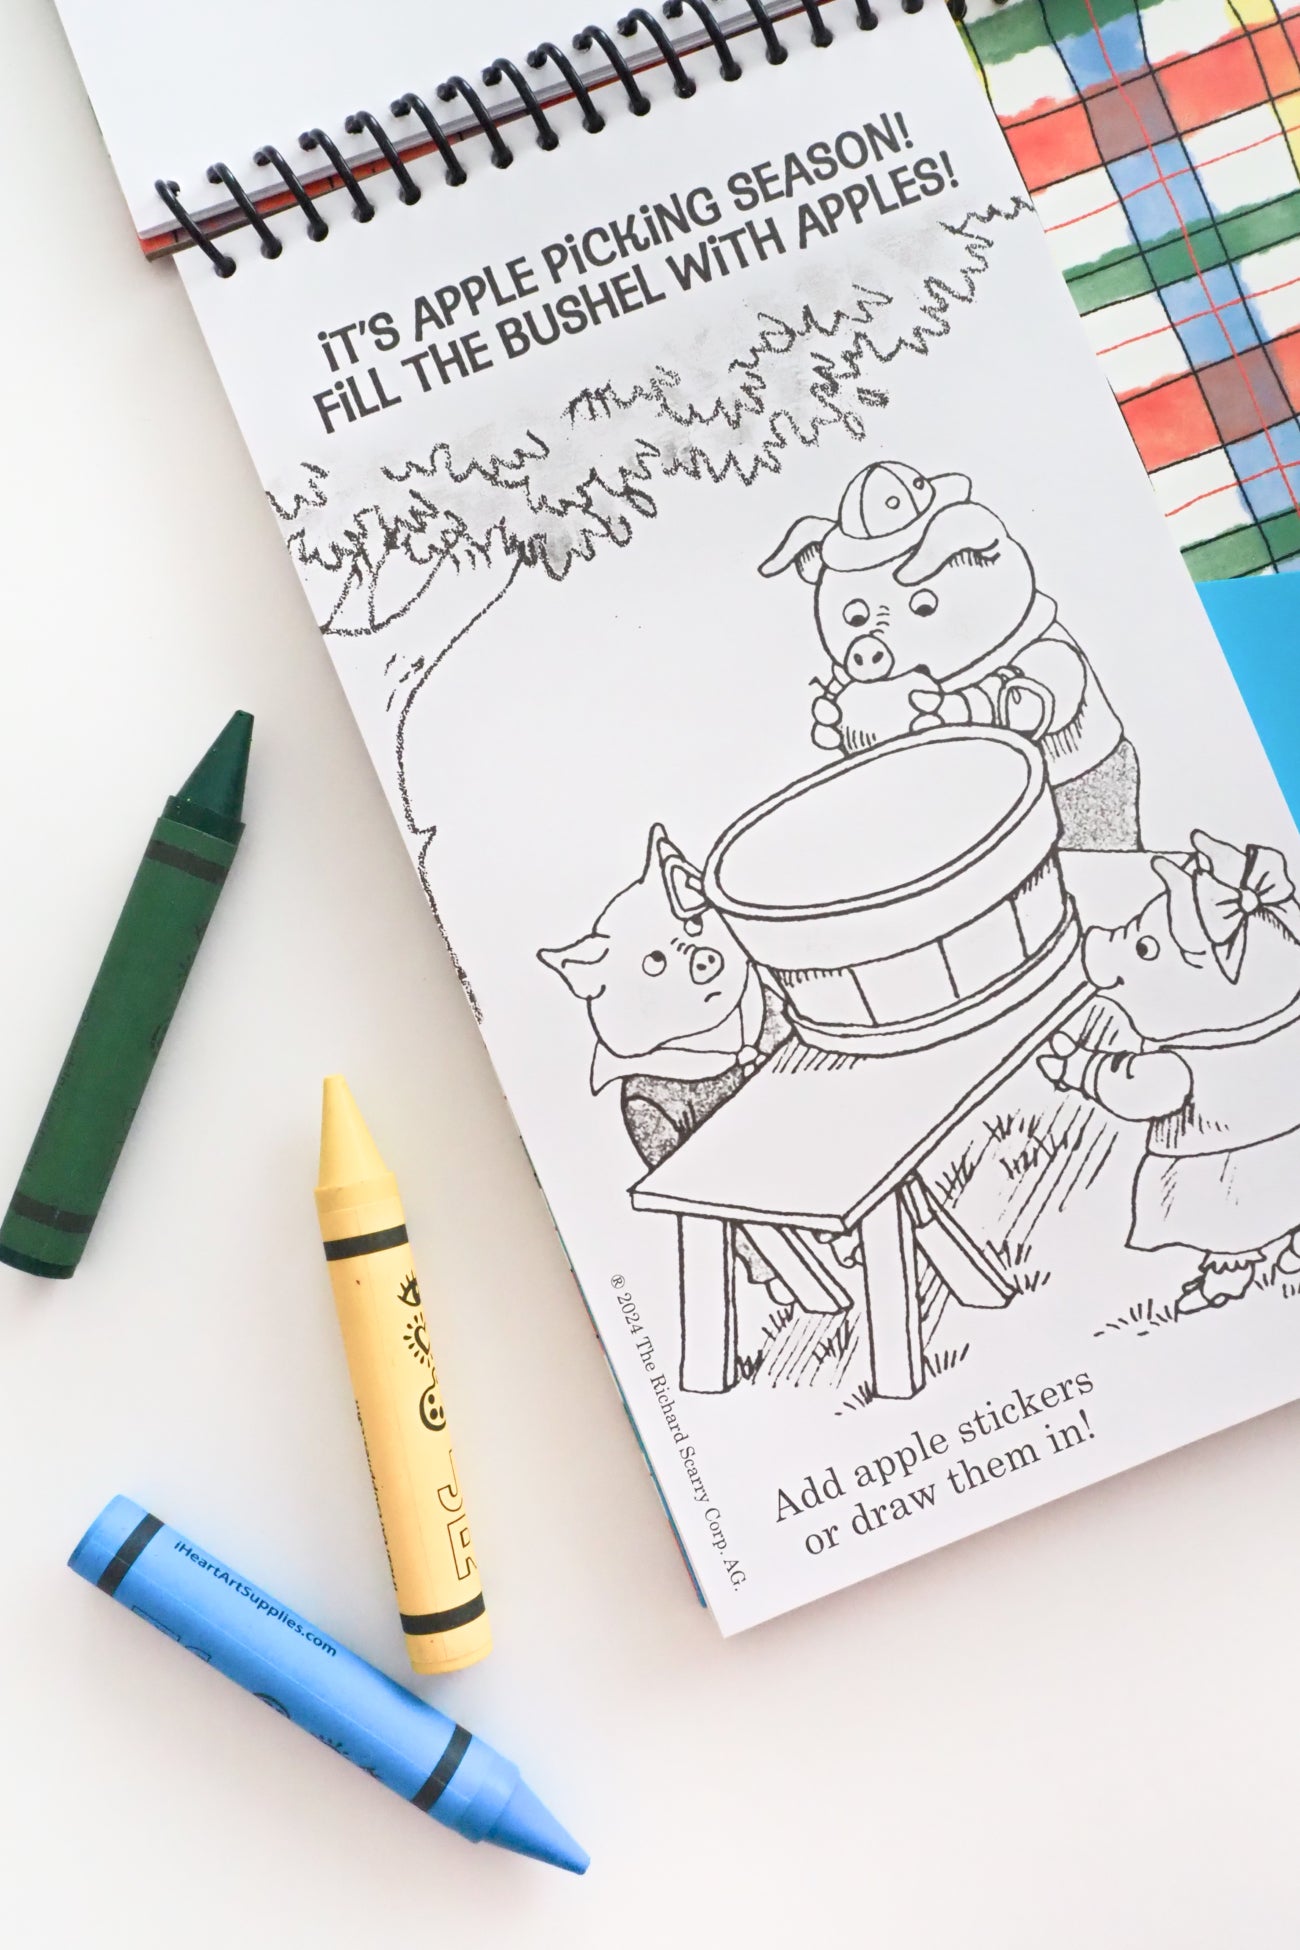 iT'S APPLE PiCKiNG SEASON!
FiLL THE BUSHEL WiTH APPLES!
® 2024 The Richard Scarry Corp. AG.
Add apple stickers
or draw them in!
JR
iHeartArtSupplies.com